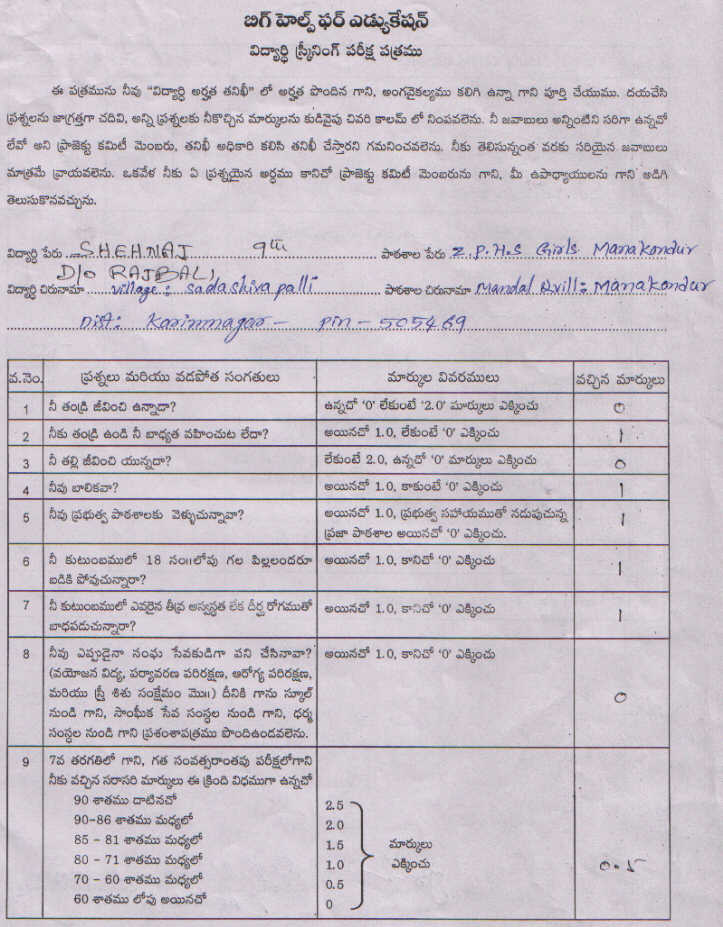 బిగ్ హెల్ప్ ఫర్ ఎడ్యుకేషన్
విద్యార్థి స్క్రీనింగ్ పరీక్ష పత్రము
ఈ పత్రమును నీవు "విద్యార్థి అర్హత తనిఖీ" లో అర్హత పొందిన గాని, అంగవైకల్యము కలిగి ఉన్నా గాని పూర్తి చేయుము. దయచేసి
ప్రశ్నలను జాగ్రత్తగా చదివి, అన్ని ప్రశ్నలకు నీకొచ్చిన మార్కులను కుడివైపు చివరి కాలమ్ లో నింపవలెను. నీ జవాబులు అన్నింటిని సరిగా ఉన్నచో
లేవో అని ప్రాజెక్టు కమిటీ మెంబరు, తనిఖీ అధికారి కలిసి తనిఖీ చేస్తారని గమనించవలెను. నీకు తెలిసున్నంత వరకు సరియైన జవాబులు
మాత్రమే వ్రాయవలెను. ఒకవేళ నీకు ఏ ప్రశ్నయైన అర్ధము కానిచో ప్రాజెక్టు కమిటీ మెంబరును గాని, మీ ఉపాధ్యాయులను గాని అడిగి
తెలుసుకొనవచ్చును.
విద్యార్థి పేరు SHEHNAJ 9th పాఠశాల పేరు Z.P.H.S Girls Manakondur
D/o RAJBALI,
విద్యార్థి చిరునామా village: sadashiva palli పాఠశాల చిరునామా Mandal &vill: Manakondur
Dist: Karimnagar - pin - 505469
వ.నెం. ప్రశ్నలు మరియు వడపోత సంగతులు మార్కుల వివరములు వచ్చిన మార్కులు
1 నీ తండ్రి జీవించి ఉన్నాడా? ఉన్నచో '0' లేకుంటే '2.0' మార్కులు ఎక్కించు 0
2 నీకు తండ్రి ఉండి నీ బాధ్యత వహించుట లేదా? అయినచో 1.0, లేకుంటే '0' ఎక్కించు 1
3 నీ తల్లి జీవించి యున్నదా? లేకుంటే 2.0, ఉన్నచో '0' మార్కులు ఎక్కించు 0
4 నీవు బాలికవా? అయినచో 1.0, కాకుంటే '0' ఎక్కించు 1
5 నీవు ప్రభుత్వ పాఠశాలకు వెళ్ళుచున్నావా? అయినచో 1.0, ప్రభుత్వ సహాయముతో నడుపుచున్న 1
ప్రజా పాఠశాల అయినచో '0' ఎక్కించు.
6 నీ కుటుంబములో 18 సం॥లోపు గల పిల్లలందరూ అయినచో 1.0, కానిచో '0' ఎక్కించు 1
బడికి పోవుచున్నారా?
7 నీ కుటుంబములో ఎవరైన తీవ్ర అస్వస్థత లేక దీర్ఘ రోగముతో అయినచో 1.0, కానిచో '0' ఎక్కించు 1
బాధపడుచున్నారా?
8 నీవు ఎప్పుడైనా సంఘ సేవకుడిగా పని చేసినావా? అయినచో 1.0, కానిచో '0' ఎక్కించు
(వయోజన విద్య, పర్యావరణ పరిరక్షణ, ఆరోగ్య పరిరక్షణ,
మరియు స్త్రీ శిశు సంక్షేమం మొ॥) దీనికి గాను స్కూల్ 0
నుండి గాని, సాంఘీక సేవ సంస్థల నుండి గాని, ధర్మ
సంస్థల నుండి గాని ప్రశంశాపత్రము పొందిఉండవలెను.
9 7వ తరగతిలో గాని, గత సంవత్సరాంతపు పరీక్షలోగాని
నీకు వచ్చిన సరాసరి మార్కులు ఈ క్రింది విధముగా ఉన్నచో
90 శాతము దాటినచో 2.5
90-86 శాతము మధ్యలో 2.0
85 - 81 శాతము మధ్యలో 1.5 మార్కులు
80 - 71 శాతము మధ్యలో 1.0 ఎక్కించు 0.5
70 - 60 శాతము మధ్యలో 0.5
60 శాతము లోపు అయినచో 0